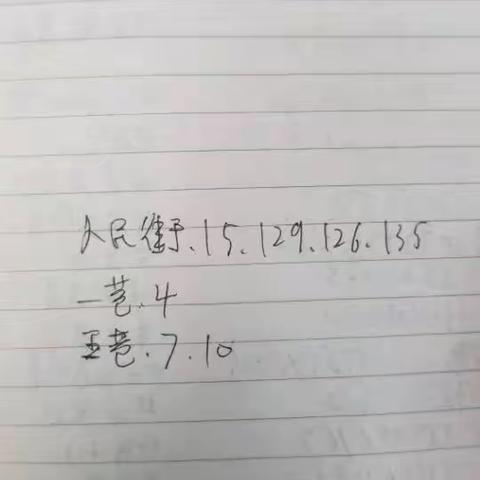 人民街.15.129.126.135
一巷.4
五巷.7.10